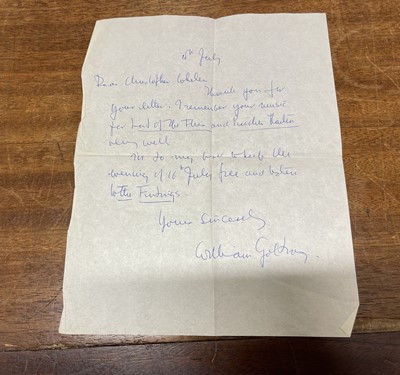 July
Dear Christopher Whelen
Thank you for
your letter. I remember your music
for Lord of the Flies and Pincher Martin
very well
I'll do my best to keep the
evening of 16th July free and listen
to The Findings.
Yours sincerely
William Golding.